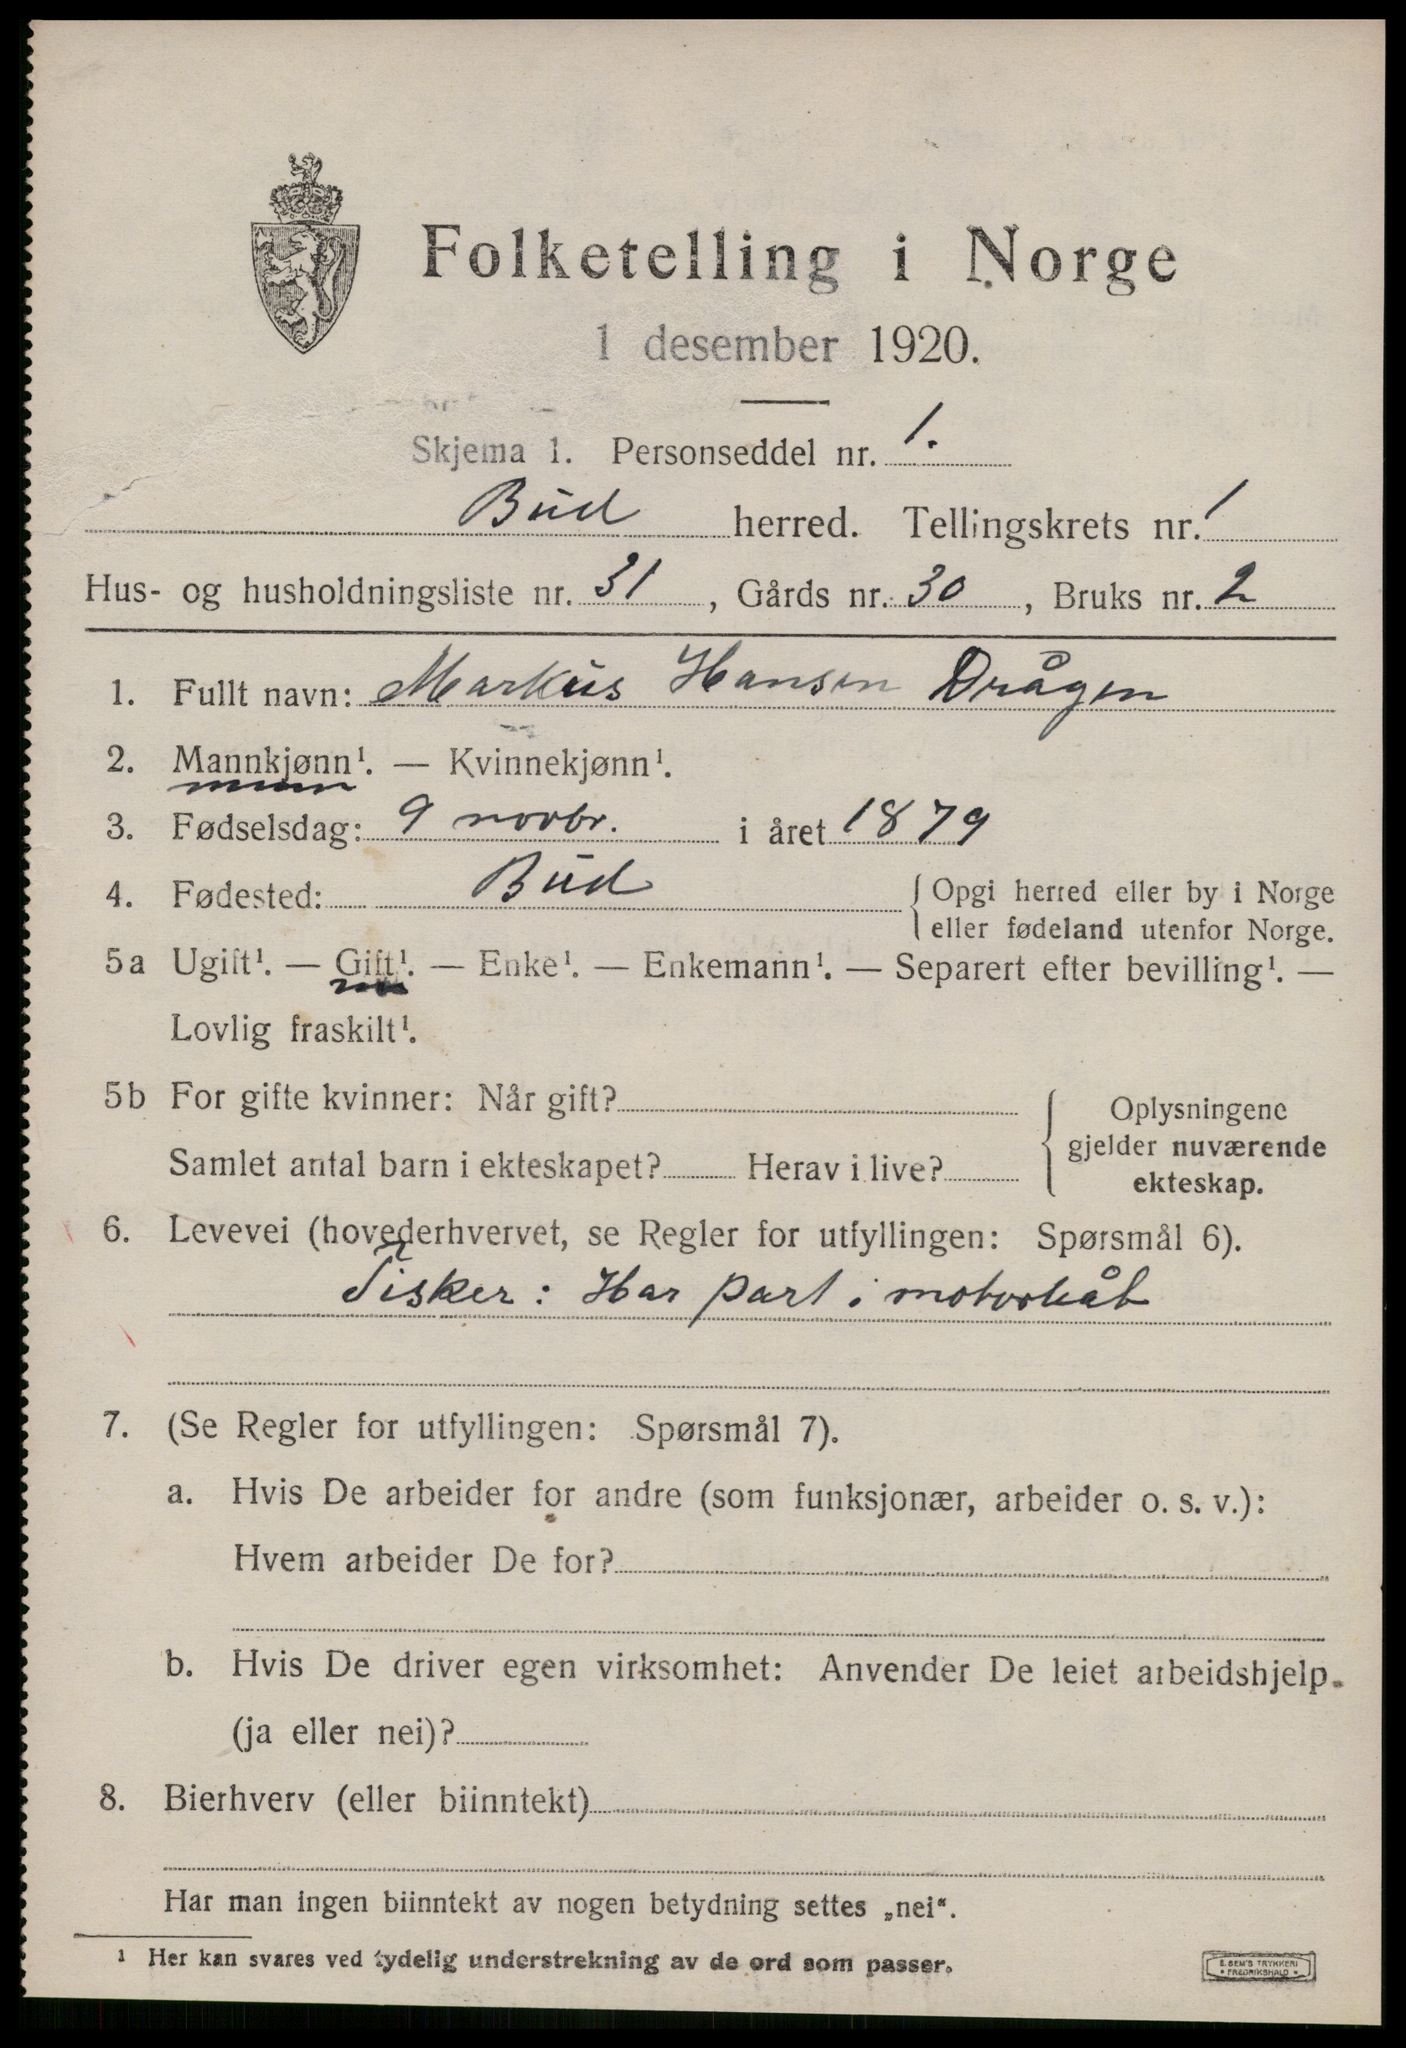 Folketelling i Norge
1 desember 1920.
Skjema 1. Personseddel nr. 1.
Bud herred. Tellingskrets nr. 1
Hus- og husholdningsliste nr. 31, Gårds nr. 30, Bruks nr. 2
1. Fullt navn: Markus Hansen Drågen
2. Mannkjønn¹. — Kvinnekjønn¹.
3. Fødselsdag: 9 novbr. i året 1879
4. Fødested: Bud { Opgi herred eller by i Norge
eller fødeland utenfor Norge.
5a Ugift¹. — Gift¹. — Enke¹. — Enkemann¹. — Separert efter bevilling¹. —
Lovlig fraskilt¹.
5b For gifte kvinner: Når gift?
Samlet antal barn i ekteskapet? Herav i live?
Oplysningene
gjelder nuværende
ekteskap.
6. Levevei (hovederhvervet, se Regler for utfyllingen: Spørsmål 6).
Fisker: Har part i motorbåt
7. (Se Regler for utfyllingen: Spørsmål 7).
a. Hvis De arbeider for andre (som funksjonær, arbeider o. s. v.):
Hvem arbeider De for?
b. Hvis De driver egen virksomhet: Anvender De leiet arbeidshjelp.
(ja eller nei)?
8. Bierhverv (eller biinntekt)
Har man ingen biinntekt av nogen betydning settes „nei“.
¹ Her kan svares ved tydelig understrekning av de ord som passer.
E. SEM'S TRYKKERI
• FREDRIKSHALD •